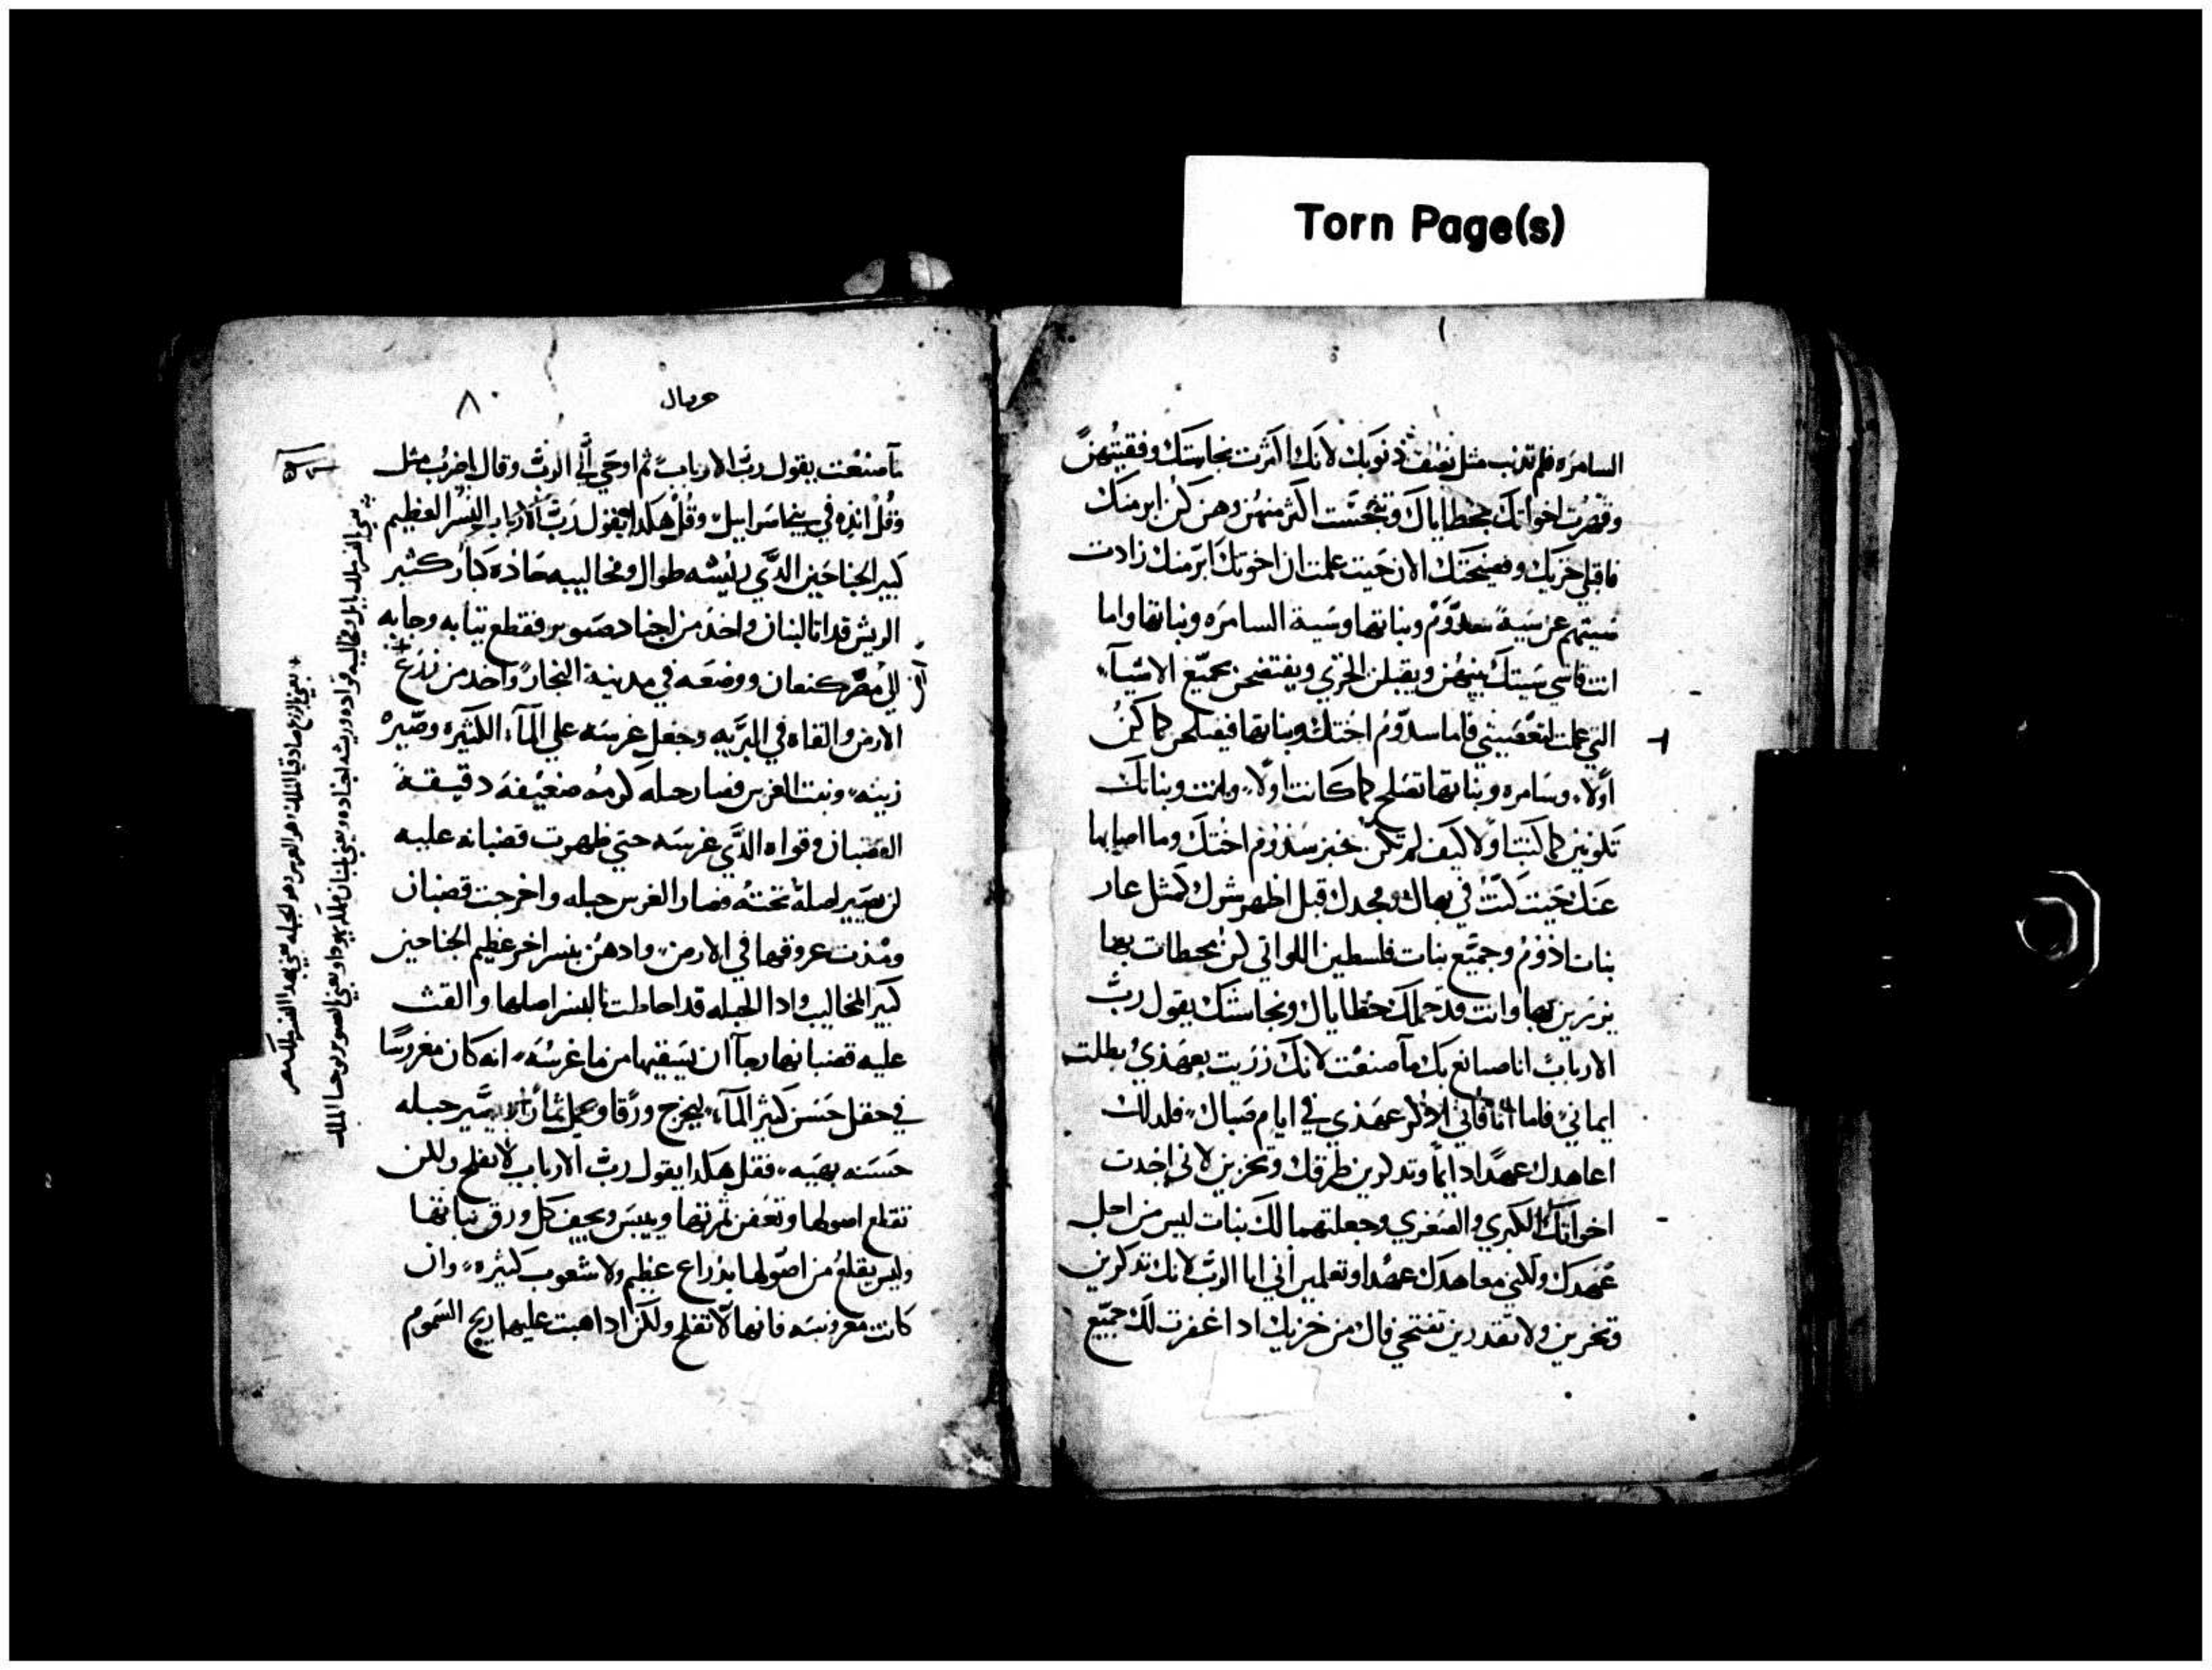 Torn Page(s)
السامره فلم تدنب مثل نصف ذنوبك لانك اكثرت نجاستك وفقيتهن
وقهرت اخواتك بخطاياك وتنجست اكثر منهن وهن كن ابر منك
فاقبلي خزيك وفضيحتك الان حيت علمت ان اخوتك ابر منك زادت
سيتهم عن سية سدوم وبناتها وسية السامره وبناتها واما
انت فاني سيتك بينهن ويقبلن الخزي ويفتضحن بجميع الاشيآء
التي عملت لتغضبيني فاما سدوم اختك وبناتها فيصلحن كما كن
اولا، وسامره وبناتها تصلح كما كانت اولا، وانت وبناتك
تكونين كما كنت اولا كيف لم تكن خبر سدوم اختك وما اصابها
عنك حيت كنت في بهاك ومجدك قبل اظهر شرك كمثل عار
بنات ادوم وجميع بنات فلسطين اللواتي كن محطات بها
يزرين بها وانت قد حملك خطاياك ونجاستك يقول رب
الارباب انا صانع بك مآ صنعت لانك زريت بعهدي بطلت
ايماني فاما انا فاني لاذكر عهدي في ايام صباك فلدلك
اعاهدك عهدًا دايمًا وتدكرين طرقك وتخزين لاني اخدت
اخواتك الكبري والصغري وجعلتهما لك بنات ليس من اجل
عهدك ولكني معاهدك عهدا وتعلمين اني انا الرب لانك تدكرين
وتخزين ولا تقدرين تفتحي فاك من خزيك ادا غفرت لك جميع
حزقيال
٨٠
مآ صنعت يقول رب الارباب ثم اوحي الي الرب وقال اضرب مثل
وقل انذه في بيت اسراييل وقل هكدا يقول رب الارباب النسر العظيم
كبير الجناحين الدي ريشه طوال ومخاليبه حاده كبار كثير
الريش قد اتا لبنان واخذ من اجناد صنوبر فقطع نباته وجابه
الي ارض كنعان ووضعه في مدينة التجار واخد من زرع
الارض والقاه في البريه وجعل غرسه علي المآء الكثيره وصيره
زينه ونبت الغرس فصار حبله كرمه ضعيفه دقيقة
القضبان وقواه الدي غرسه حتي ظهرت قضبانه عليه
لن يصير اصله تحته فصار الغرس حبله واخرجت قضبان
ومدت عروقها في الارض وادهن بنسر اخر عظيم الجناحين
كبير المخاليب وادا الحبله قد احاطت بالنسر اصلها والقت
عليه قضبانها رجآ ان يسقيها من ما غرسه انه كان مغروسًا
في حقل حسن كثير المآء ليخرج ورقا ويحمل ثمارًا ويصير حبله
حسنه بهيه فقل هكدا يقول رب الارباب لا تفلح ولكن
تقلع اصولها وتعفن ثمرتها وييبس ويجف كل ورق نباتها
وليس يقلع من اصولها بذراع عظيم ولا شعوب كثيره وان
كانت مغروسه فانها لا تفلح ولكن ادا هبت عليها ريح السموم